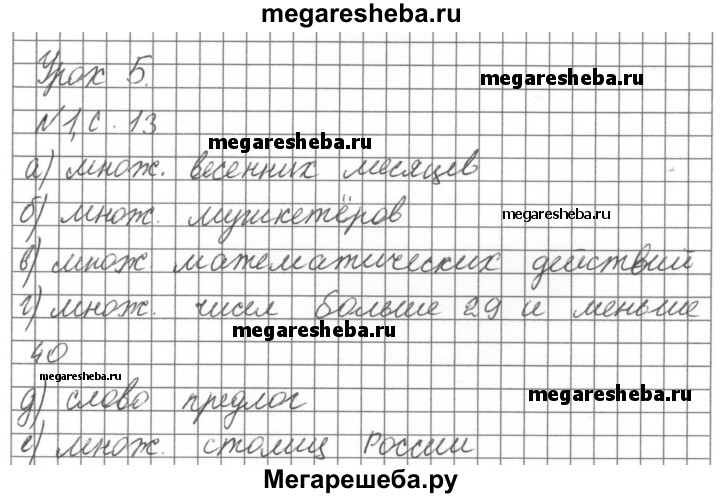 megaresheba.ru
Урок 5.
megaresheba.ru
№1, с. 13
megaresheba.ru
а) множ. весенних месяцев
б) множ. мушкетёров
megaresheba.ru
в) множ. математических действий
г) множ. чисел больше 29 и меньше
megaresheba.ru
40
megaresheba.ru
д) слово предлог
megaresheba.ru
е) множ. столиц России
Мегарешеба.ру